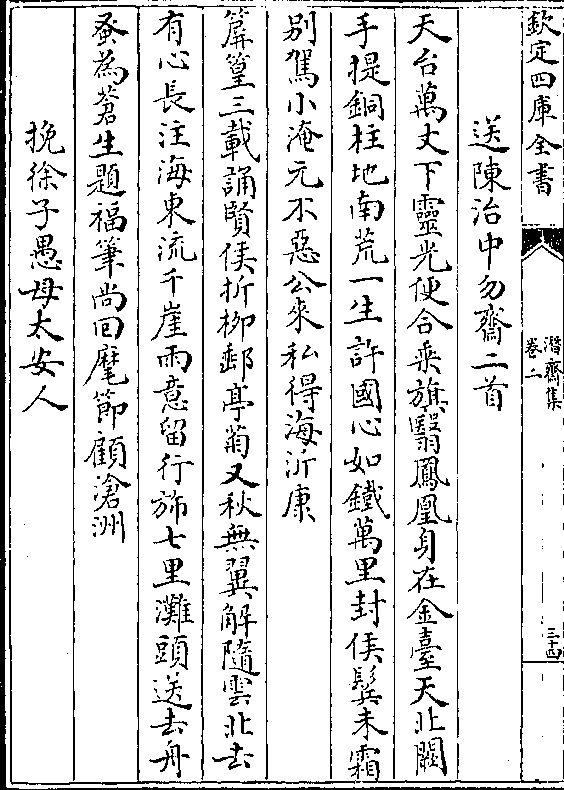 欽定四庫全書
潛齋集
卷二
三十四
送陳治中勿齋二首
天台萬丈下靈光便合乘旗翳鳳凰身在金臺天北闕
手提銅柱地南荒一生許國心如鐵萬里封侯鬂未霜
别駕小淹元不惡公來私得海沂康
篁三載誦賢侯折栁郵亭菊又秋無翼解隨雲北去
有心長注海東流千崖雨意留行斾七里灘頭送去舟
蚤為蒼生題福筆尚回麾節顧滄洲
挽徐子愚母太安人